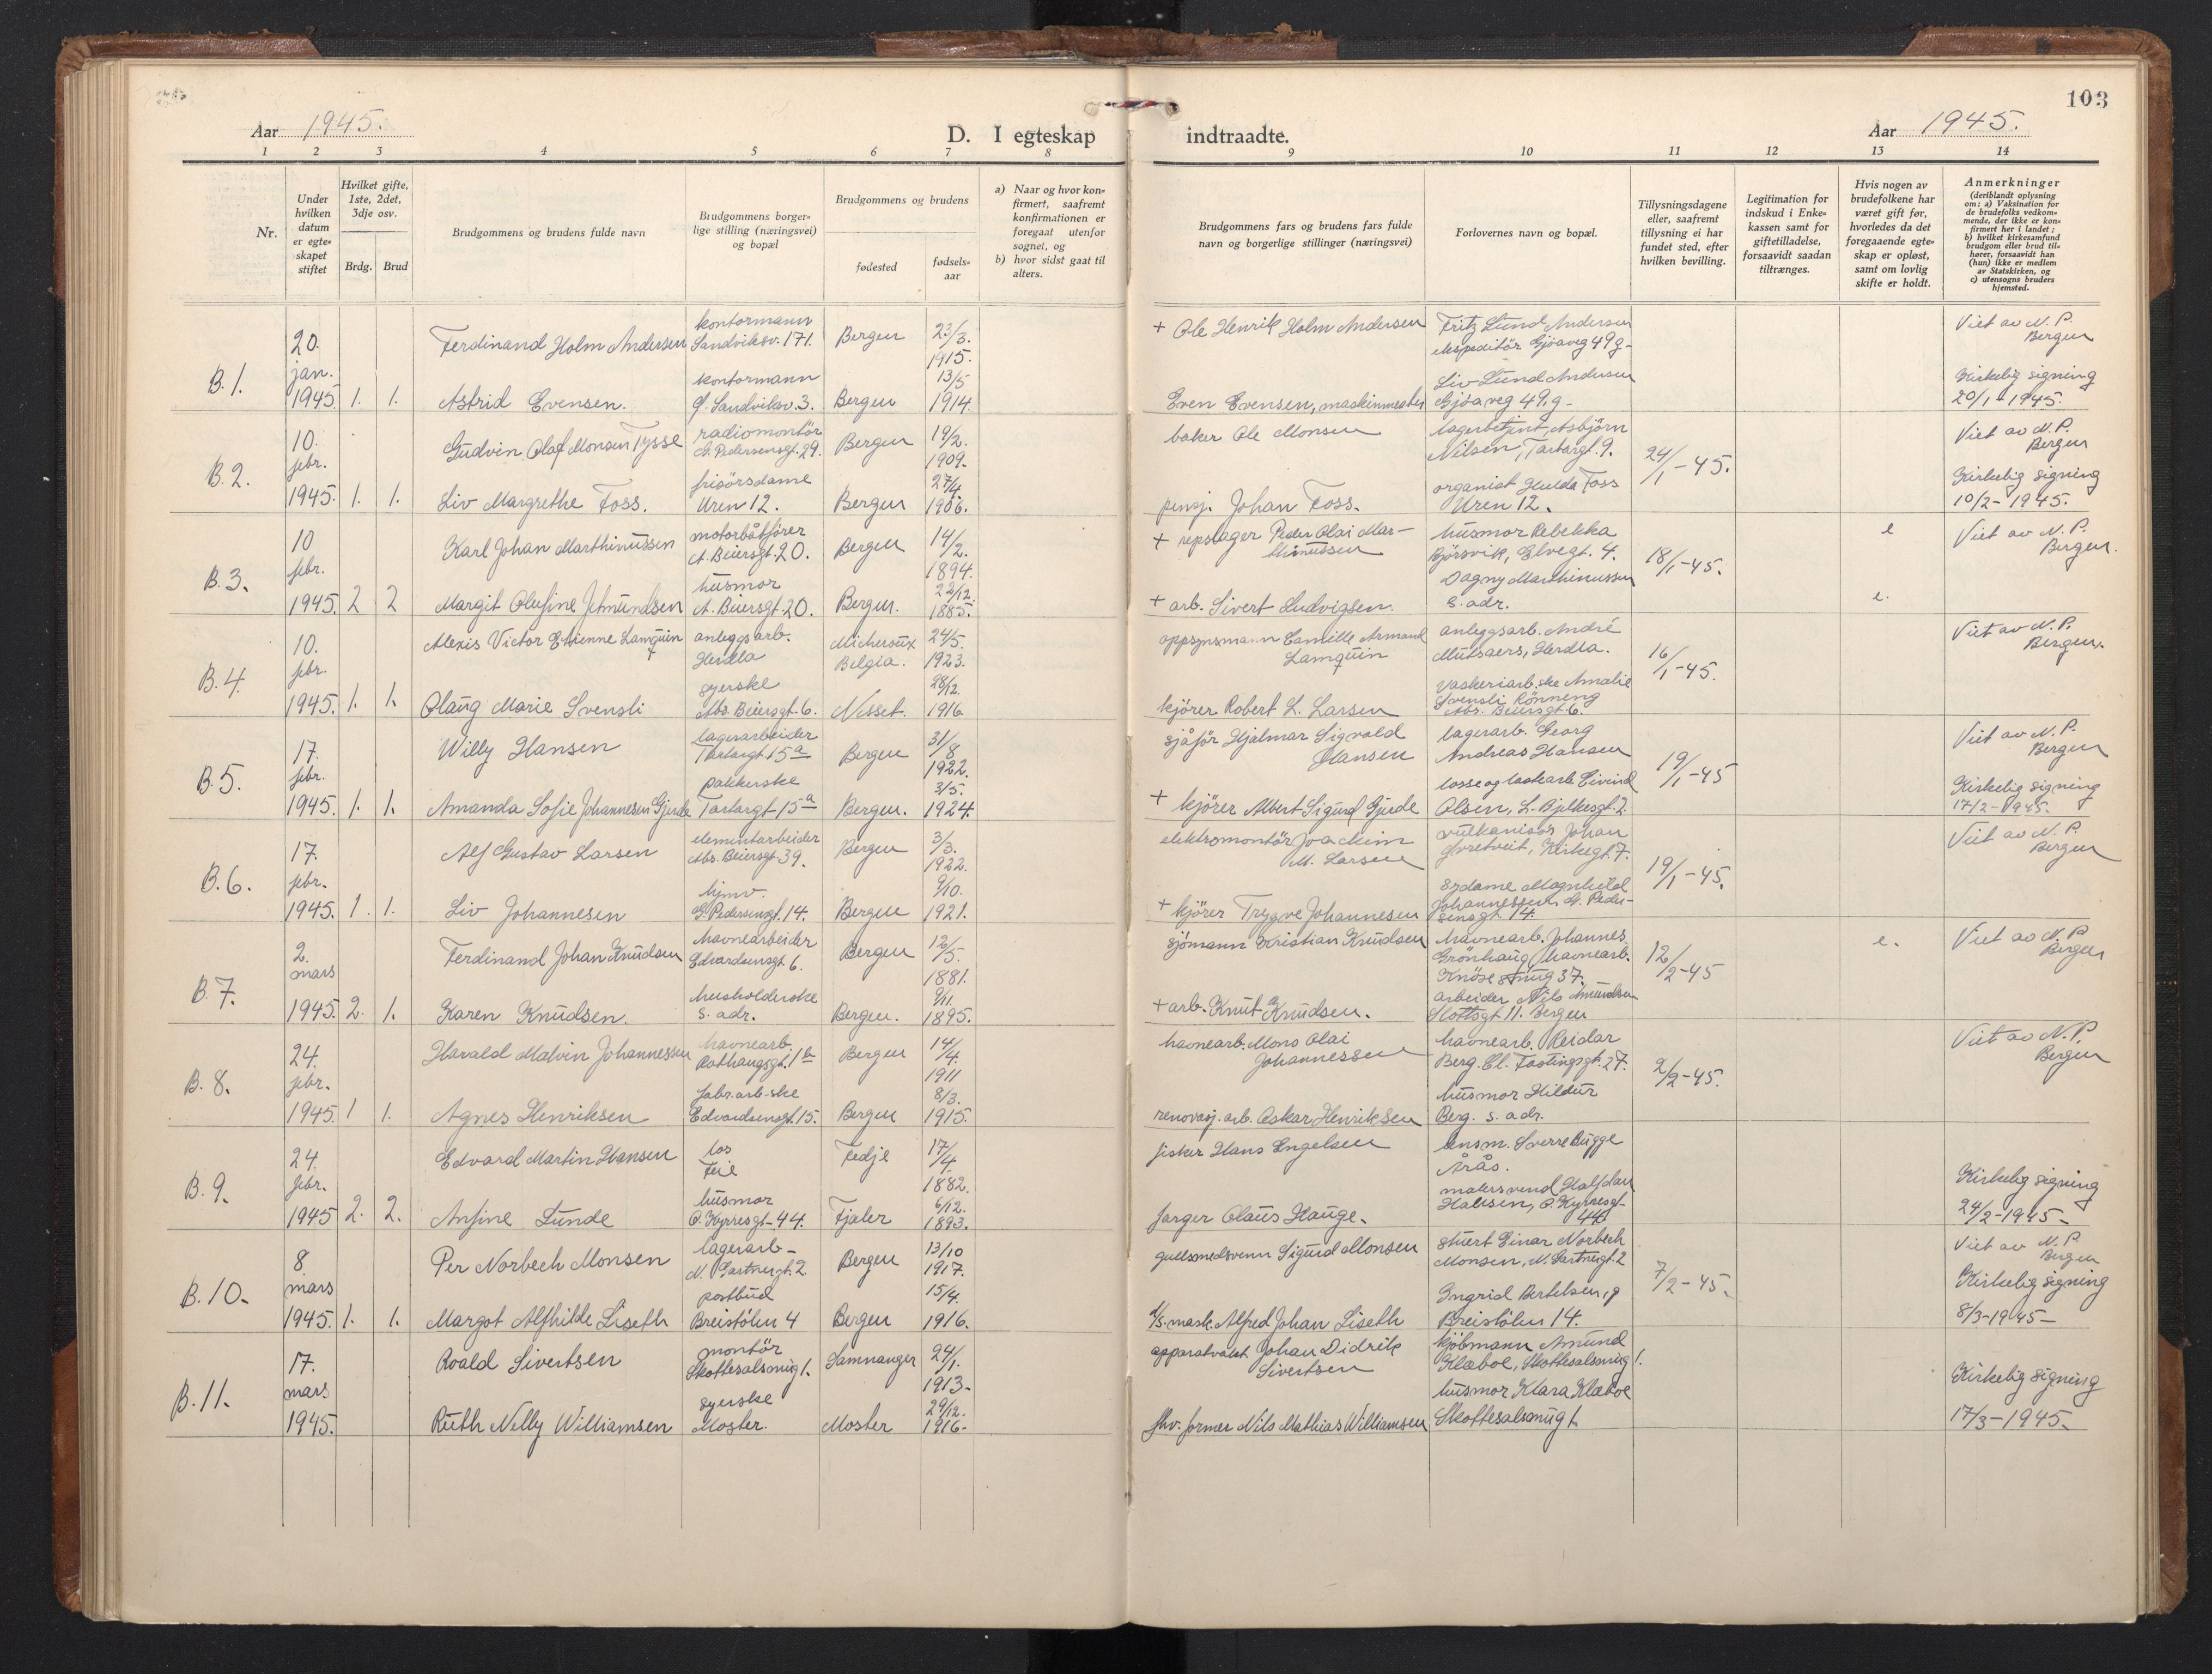 103
Aar 1945.
D. I egteskap
indtraadte.
Aar 1945.
1 2 3 4 5 6 7 8
9 10 11 12 13 14
Nr.
Under hvilken datum er egte-skapet stiftet
Hvilket gifte, 1ste, 2det, 3dje osv.
Brdg. Brud
Brudgommens og brudens fulde navn
Brudgommens borger-lige stilling (næringsvei) og bopæl
Brudgommens og brudens
fødested
fødsels-aar
a) Naar og hvor kon-firmert, saafremt konfirmationen er foregaat utenfor sognet, og
b) hvor sidst gaat til alters.
Brudgommens fars og brudens fars fulde navn og borgerlige stillinger (næringsvei)
Forlovernes navn og bopæl.
Tillysningsdagene eller, saafremt tillysning ei har fundet sted, efter hvilken bevilling.
Legitimation for indskud i Enke-kassen samt for giftetilladelse, forsaavidt saadan tiltrænges.
Hvis nogen av brudefolkene har været gift før, hvorledes da det foregaaende egte-skap er opløst, samt om lovlig skifte er holdt.
Anmerkninger
(deriblandt oplysning om: a) Vaksination for de brudefolks vedkom-mende, der ikke er kon-firmert her i landet; b) hvilket kirkesamfund brudgom eller brud til-hører, forsaavidt han (hun) ikke er medlem av Statskirken, og c) utensogns bruders hjemsted.
B. 1.
20. jan. 1945. 1. 1.
Ferdinand Holm Andersen
kontormann Sandviksv. 171.
Bergen 23/3. 1915.
+ Ole Henrik Holm Andersen
Fritz Lund Andersen ekspeditör Gjöaveg 49g-
Viet av N. P. Bergen
Astrid Evensen.
kontormann Ø. Sandviksv. 3.
Bergen 13/5 1914
Even Evensen, maskinmester
Liv Lund Andersen Gjöaveg 49.g-
Kirkelig signing 20/1-1945.
B. 2.
10. febr. 1945. 1. 1.
Gudvin Olaf Monsen Tysse
radiomontör G. Pedersensgt. 29.
Bergen 19/2. 1909.
baker Ole Monsen
lagerbetjent, Asbjörn Nilsen, Tartargt. 9.
24/1-45.
Viet av N. P. Bergen
Liv Margrethe Foss.
frisörsdame Uren 12.
Bergen 27/4. 1906.
pensj. Johan Foss.
organist Hulda Foss Uren 12.
Kirkelig signing 10/2-1945.
B. 3.
10 febr. 1945. 2 2
Karl Johan Marthinussen
motorbåtförer A. Beiersgt. 20.
Bergen 14/2. 1894.
+ repslager Peder Olai Mar-thinussen
husmor Rebekka Bjørsvik, Elvegt. 4.
18/1-45.
e
Viet av N. P. Bergen.
Margit Olufine
husmor A. Beiersgt. 20.
Bergen. 22/12. 1885.
+ arb. Sivert Ludvigsen.
Dagny Marthinussen s. adr.
e.
B. 4.
10. febr. 1945. 1. 1.
Alexis Victor Etienne Lamquin
anleggsarb. Herdla
Micheroux Belgia. 24/5. 1923.
oppsynsmann Camille Armand Lamquin
anleggsarb. André Mutsaers, Herdla.
16/1-45.
Viet av N. P. Bergen.
Olaug Marie Svensli
syerske Abs. Beiersgt. 6.
Nesset. 28/12. 1916
kjörer Robert L. Larsen
vaskeriarb.ske Amalie Svensli Rönneng Abs. Beiersgt. 6.
B. 5.
17. febr. 1945. 1. 1.
Willy Hansen
lagerarbeider Tartargt 15a
Bergen 31/8 1922.
sjåför Hjalmar Sigvald Hansen
lagerarb. Georg Andreas Hansen
19/1-45
Viet av N. P. Bergen
Amanda Sofie Johannesen Gjerde
pakkerske Tartargt 15a
Bergen. 3/5. 1924.
+ kjörer Albert Sigurd Gjerde
losse og lastearb. Eivind Olsen, L. Bjelkesgt. 2.
Kirkelig signing 17/2-1945.
B. 6.
17. febr. 1945. 1. 1.
Alf Gustav Larsen
elementarbeider Abs. Beiersgt. 39.
Bergen 3/3. 1922.
elektromontör Joachim M. Larsen
vulkanisör Johan Kirkegt. 7.
19/1-45.
Viet av N. P. Bergen
Liv Johannesen
hjmv. G. Pedersensgt. 14.
Bergen 9/10. 1921.
+ kjörer Trygve Johannesen
sydame Magnhild Johannessen G. Peder-sensgt 14.
B. 7.
2. mars 1945. 2. 1.
Ferdinand Johan Knudsen
havnearbeider Edvardsensgt. 6.
Bergen 12/5. 1881.
sjömann Kristian Knudsen
havnearb. Johannes Grönhaug, havnearb. Knösesmug 37.
12/2-45
e.
Viet av N. P. Bergen
Karen Knudsen.
husholderske s. adr.
Bergen. 9/11. 1895.
+ arb. Knut Knudsen.
arbeider Nils Amundsen Slottsgt 11. Bergen
B. 8.
24. febr. 1945. 1 1.
Harald Malvin Johannessen
havnearb. Rothaugsgt. 1b
Bergen 14/4. 1911
havnearb. Mons Olai Johannessen
havnearb. Reidar Berg. Cl. Fastingsgt. 27.
2/2-45.
Viet av N. P. Bergen
Agnes Henriksen
fabr.arb.ske Edvardsensgt. 15.
Bergen 8/3. 1915.
renovasj. arb. Oskar Henriksen
husmor Hildur Berg. s. adr.
B. 9.
24. febr. 1945 2. 2.
Edvard Martin Hansen
los Feie
Fedje 17/4. 1882.
fisker Hans Engelsen
lensm. Sverre Bugge Årås.
Ansine Lunde
husmor O. Kyrresgt-44.
Fjaler 6/12. 1893.
farger Olaus Hauge.
malersvend Halfdan O. Kyrresgt-44.
Kirkelig signing 24/2-1945-
B. 10.
8 mars 1945. 1. 1.
Per Norbech Monsen
lagerarb- N. Gartnergt. 2
Bergen 13/10 1917.
gullsmedsvenn Sigurd Monsen
stuert Einar Norbech Monsen, N. Gartnergt. 2
7/2-45.
Viet av N. P. Bergen
Margot Alfhilde Liseth
postbud Breistölen 4
Bergen 15/4. 1916.
d/s. mask. Alfred Johan Liseth
Ingrid Bertelsen, Breistölen 14.
Kirkelig signing 8/3-1945-
B. 11.
17. mars 1945.
Roald Sivertsen
montör Skottesalsmug 1.
Samnanger 24/1. 1913-
apparatvakt Johan Didrik Sivertsen
kjöbmann Amund Klæboe, Skottesalsmug 1.
Kirkelig signing 17/3-1945.
Ruth Nelly Williamsen
syerske Moster.
Moster 29/12. 1916-
fhv. former Nils Mathias Williamsen
husmor Klara Klæboe Skottesalsmug 1.